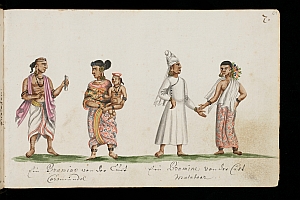 7.
Ein Bramine von der Cust
Cormandel
Ein Bramine von der Cust
Malabar